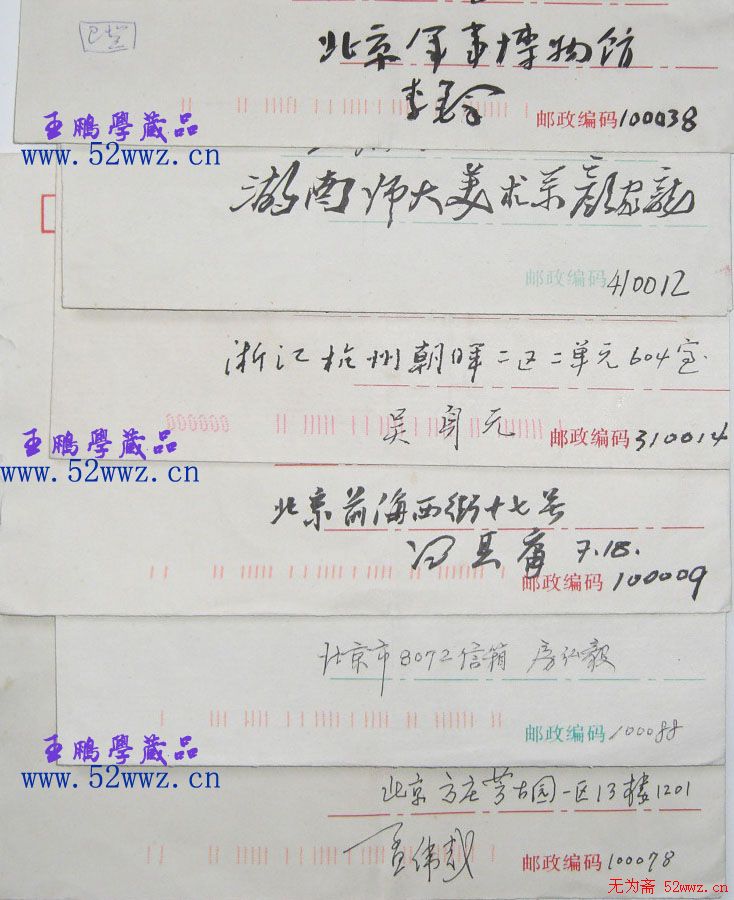 已登
北京军事博物馆
李铎
邮政编码 100038
王鹏學藏品
www.52wwz.cn
湖南师大美术系颜家龙
邮政编码 410012
浙江杭州朝晖二区二单元604室
000000
吴
元
邮政编码 310014
王鹏學藏品
www.52wwz.cn
北京前海西街十七号
7.18.
邮政编码 100009
北京市8072信箱 房弘毅
邮政编码 100088
王鹏學藏品
www.52wwz.cn
北京方庄芳古园一区13楼1201
孟伟哉
邮政编码 100078
无为斋 52wwz.cn